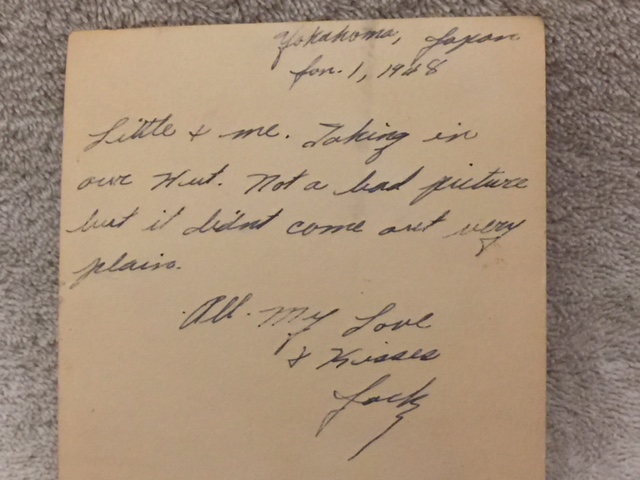 Yokahoma, Japan
Jan. 1, 1948
Little & me. Taking in
our Hut. Not a bad picture
but it didnt come out very
plain.
All My Love
& Kisses
Jack